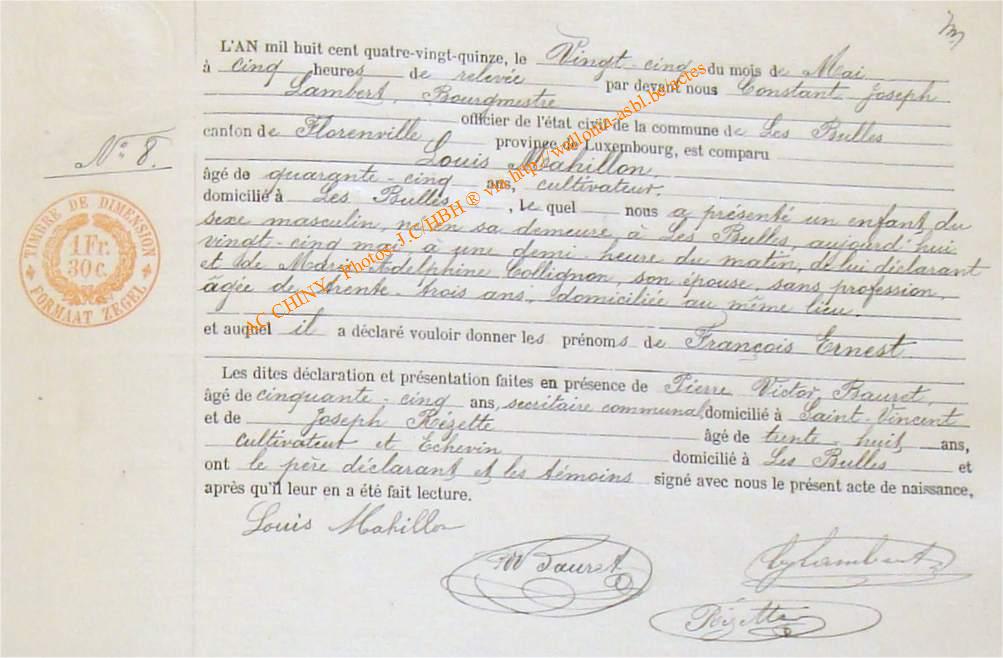 m
L'AN mil huit cent quatre-vingt-quinze, le Vingt-cinq du mois de Mai
à cinq heures de relevée par devant nous Constant Joseph
Lambert, Bourgmestre
officier de l'état civil de la commune de Les Bulles
canton de Florenville province de Luxembourg, est comparu
Louis Mahillon
âgé de quarante-cinq ans, cultivateur,
domicilié à Les Bulles, le quel nous a présenté un enfant du
sexe masculin, né en sa demeure à Les Bulles, aujourd'hui
vingt-cinq mai à une demi-heure du matin, de lui déclarant
et de Marie Adelphine Collignon, son épouse, sans profession,
âgée de trente trois ans, domiciliée au même lieu.
et auquel il a déclaré vouloir donner les prénoms de François Ernest
Les dites déclaration et présentation faites en présence de Pierre Victor Bauret,
âgé de cinquante-cinq ans, secrétaire communal, domicilié à Saint-Vincent
et de Joseph Rézette âgé de trente-huit ans,
cultivateur et Echevin domicilié à Les Bulles et
ont le père déclarant et les témoins signé avec nous le présent acte de naissance,
après qu'il leur en a été fait lecture.
N° 8.
TIMBRE DE DIMENSION
1 Fr.
30 c.
FORMAAT ZEGEL
AC CHINY - Photos J.C/HBH ® via http://wallonia-asbl.be/actes
Louis Mahillon
Bauret
CJLambert
Rézette